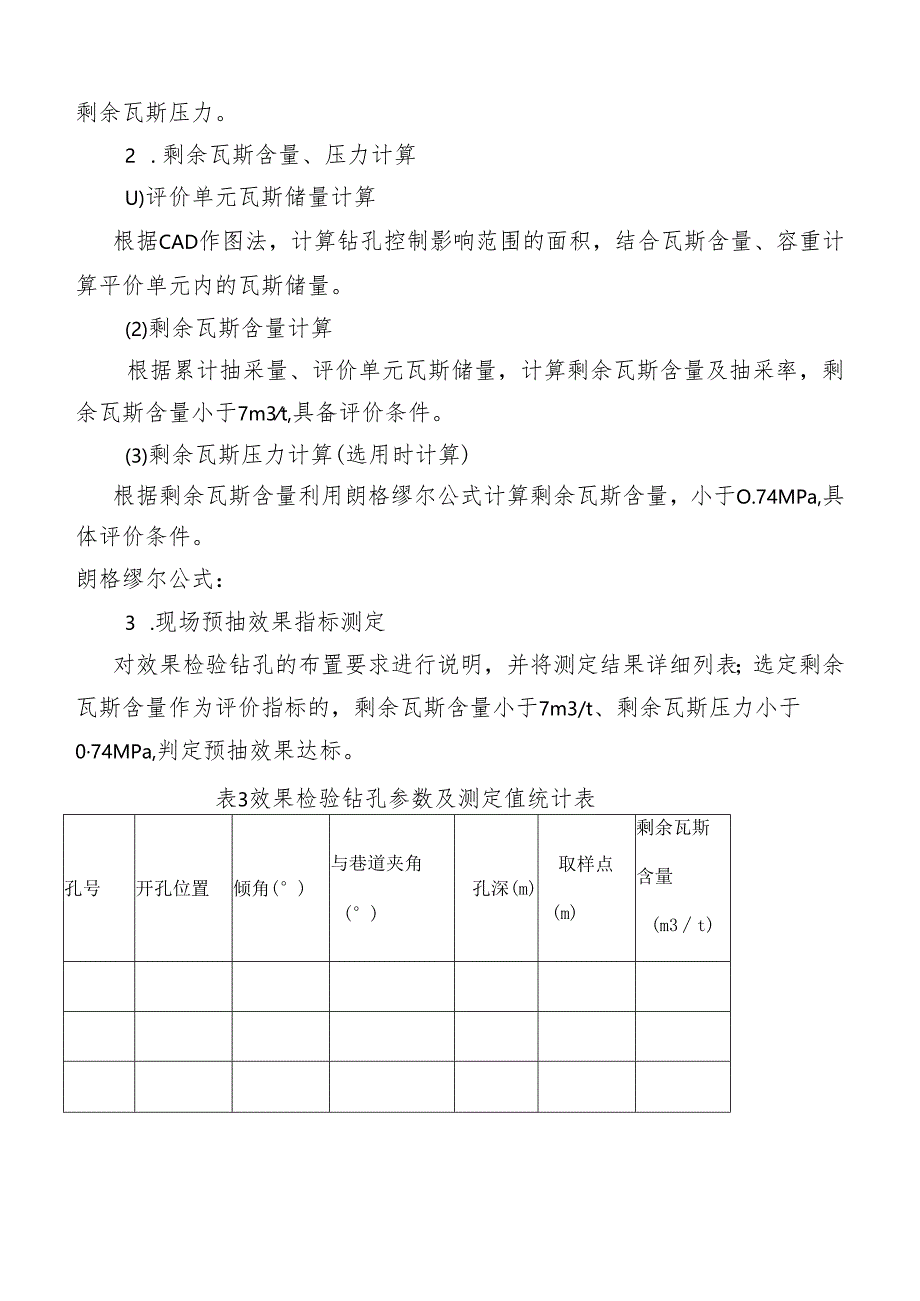 剩余瓦斯压力。
2 . 剩余瓦斯含量、压力计算
U)评价单元瓦斯储量计算
根据CAD作图法，计算钻孔控制影响范围的面积，结合瓦斯含量、容重计
算平价单元内的瓦斯储量。
(2)剩余瓦斯含量计算
根据累计抽采量、评价单元瓦斯储量，计算剩余瓦斯含量及抽采率，剩
余瓦斯含量小于7m3⁄t,具备评价条件。
(3)剩余瓦斯压力计算(选用时计算)
根据剩余瓦斯含量利用朗格缪尔公式计算剩余瓦斯含量，小于O.74MPa,具
体评价条件。
朗格缪尔公式：
3 .现场预抽效果指标测定
对效果检验钻孔的布置要求进行说明，并将测定结果详细列表；选定剩余
瓦斯含量作为评价指标的，剩余瓦斯含量小于7m3/t、剩余瓦斯压力小于
0·74MPa,判定预抽效果达标。
表3效果检验钻孔参数及测定值统计表
孔号
开孔位置
倾角(°)
与巷道夹角
(°)
孔深(m)
取样点
(m)
剩余瓦斯
含量
(m3／t)